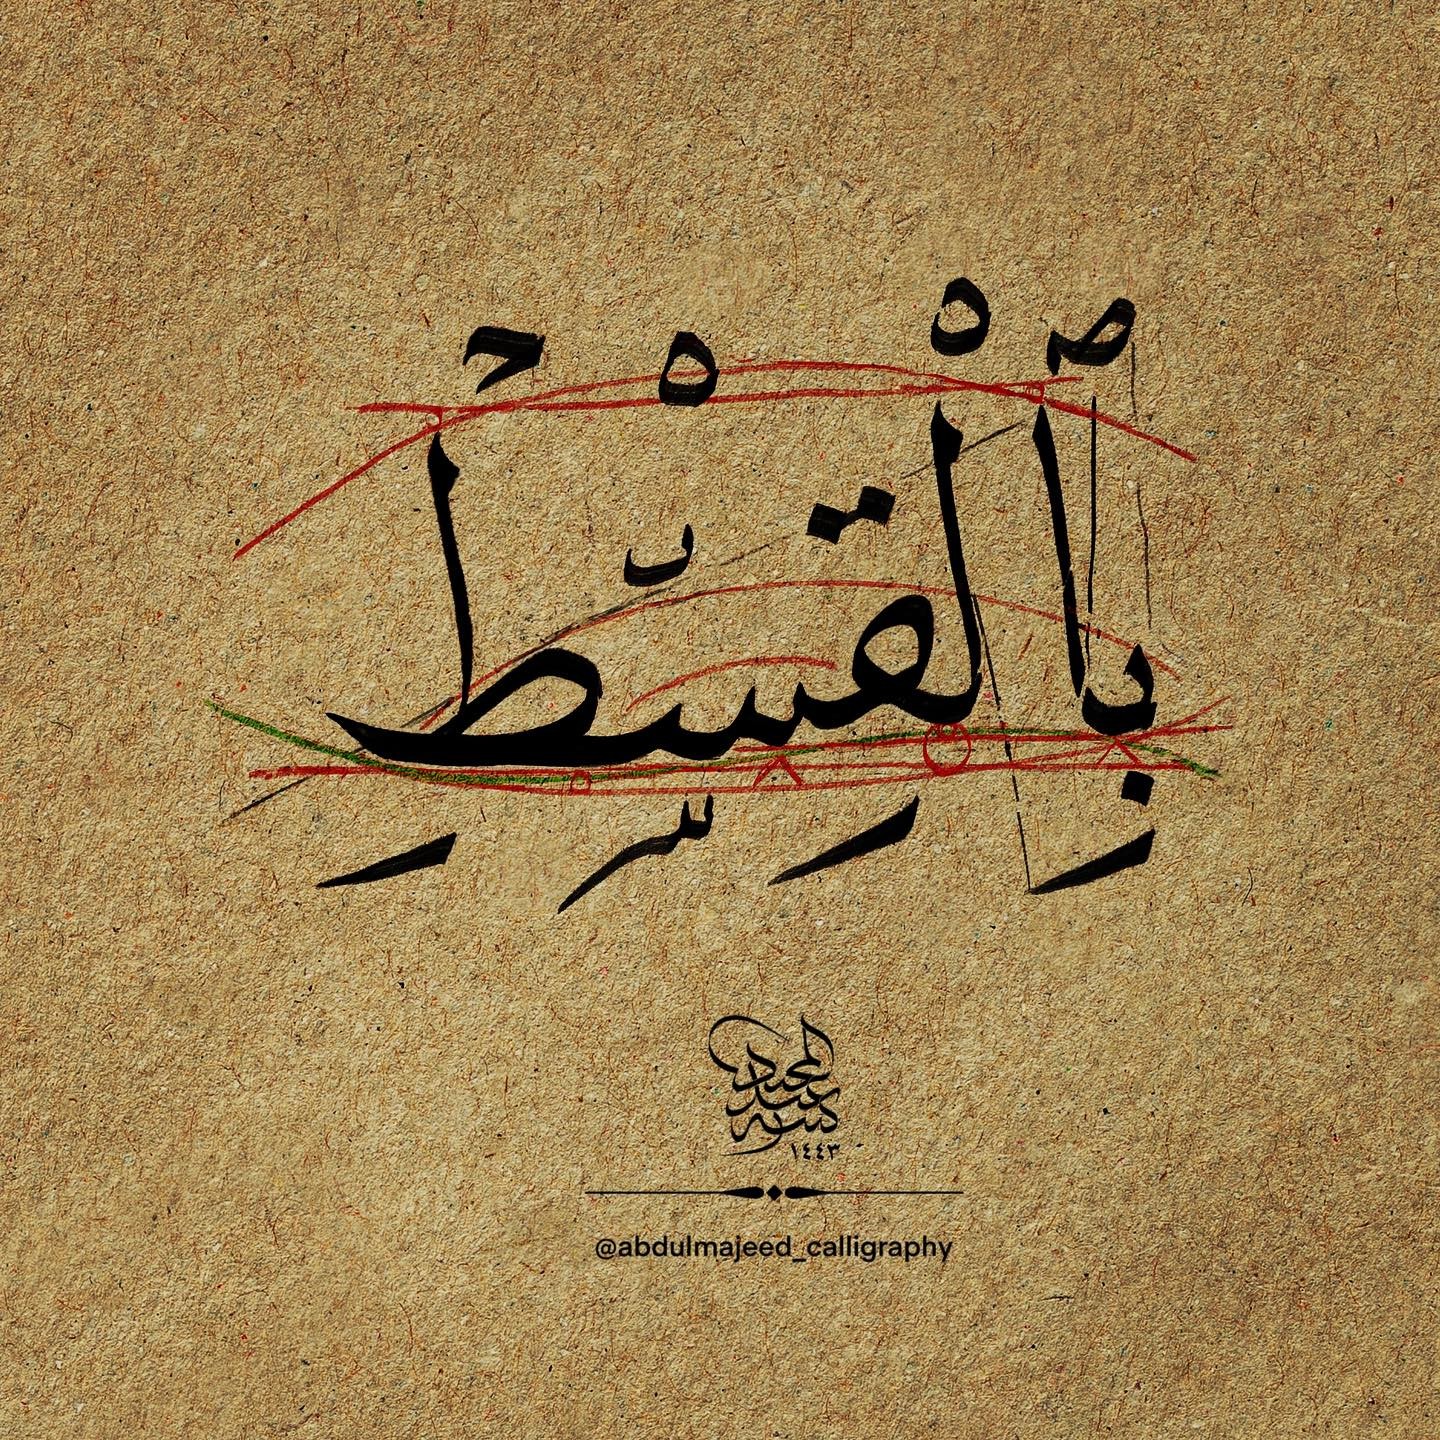 بِٱلْقِسْطِ
كتبه
عبد
المجيد
١٤٤٣
@abdulmajeed_calligraphy